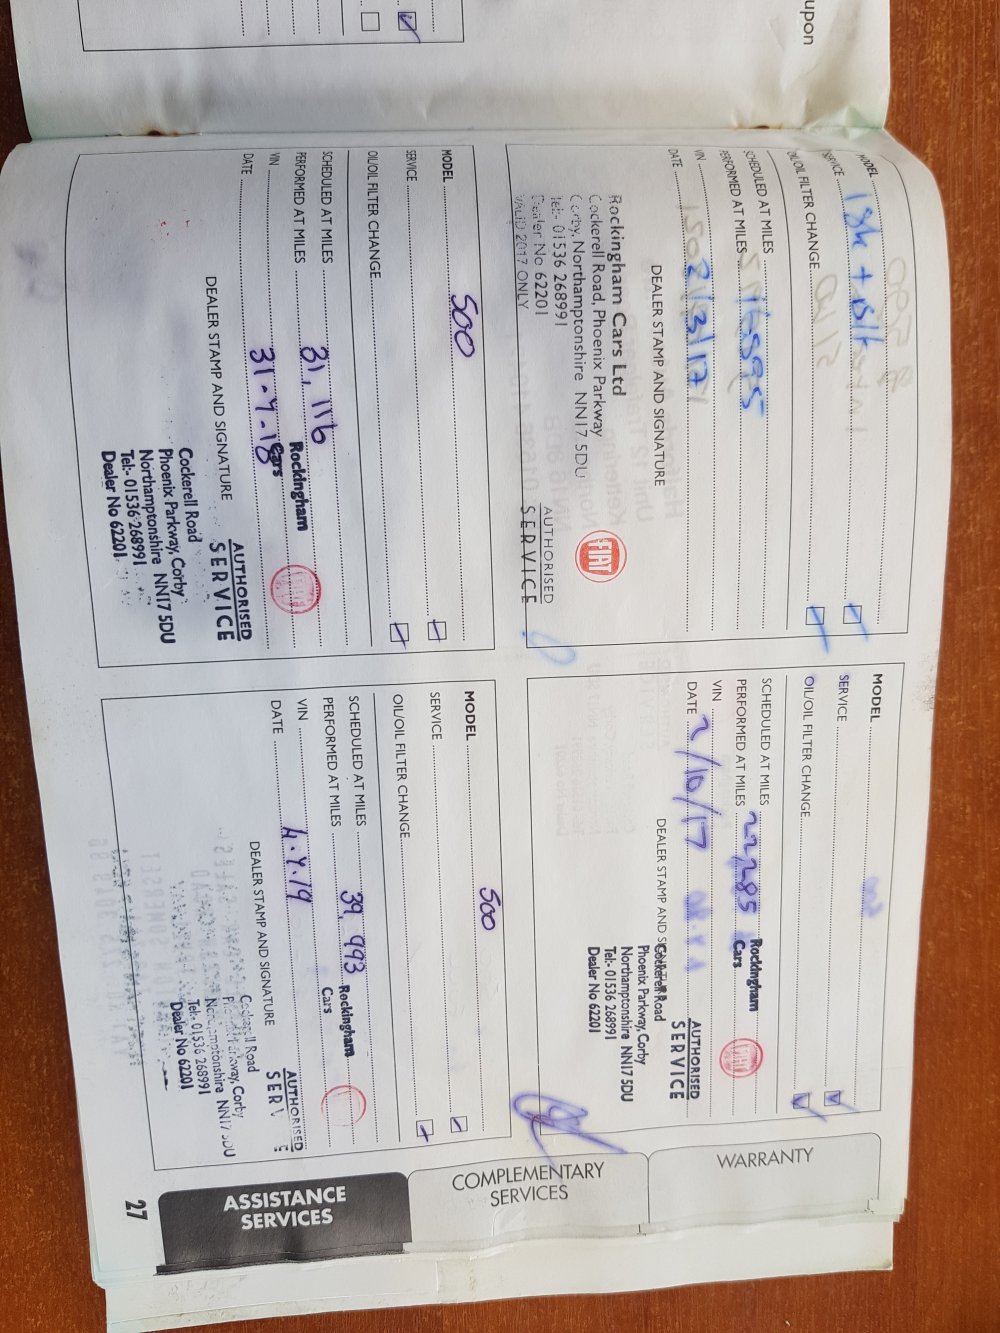 upon
MODEL
SERVICE
18k +
OIL/OIL FILTER CHANGE
SCHEDULED AT MILES
PERFORMED AT MILES
VIN
DATE
DEALER STAMP AND SIGNATURE
Rockingham Cars Ltd
Cockerell Road, Phoenix Parkway
Corby, Northamptonshire NN17 5DU
Tel:- 01536 268991
Dealer No 62201
VALID 2017 ONLY
FIAT
AUTHORISED
SERVICE
MODEL
SERVICE
OIL/OIL FILTER CHANGE
SCHEDULED AT MILES
PERFORMED AT MILES 22285
VIN
DATE 2/10/17
DEALER STAMP AND SIGNATURE
Rockingham
Cars
FIAT
Cockerell Road
Phoenix Parkway, Corby
Northamptonshire NN17 5DU
Tel:- 01536 268991
Dealer No 62201
AUTHORISED
SERVICE
MODEL 500
SERVICE
OIL/OIL FILTER CHANGE
SCHEDULED AT MILES
PERFORMED AT MILES 31,116
VIN
DATE 31.7.18
DEALER STAMP AND SIGNATURE
Rockingham
Cars
FIAT
Cockerell Road
Phoenix Parkway, Corby
Northamptonshire NN17 5DU
Tel:- 01536 268991
Dealer No 62201
AUTHORISED
SERVICE
MODEL 500
SERVICE
OIL/OIL FILTER CHANGE
SCHEDULED AT MILES 39,993
PERFORMED AT MILES
VIN 4.7.19
DATE
DEALER STAMP AND SIGNATURE
Rockingham
Cars
Cockerell Road
Phoenix Parkway, Corby
Northamptonshire NN17 5DU
Tel:- 01536 268991
Dealer No 62201
AUTHORISED
SERVICE
WARRANTY
COMPLEMENTARY
SERVICES
ASSISTANCE
SERVICES
27